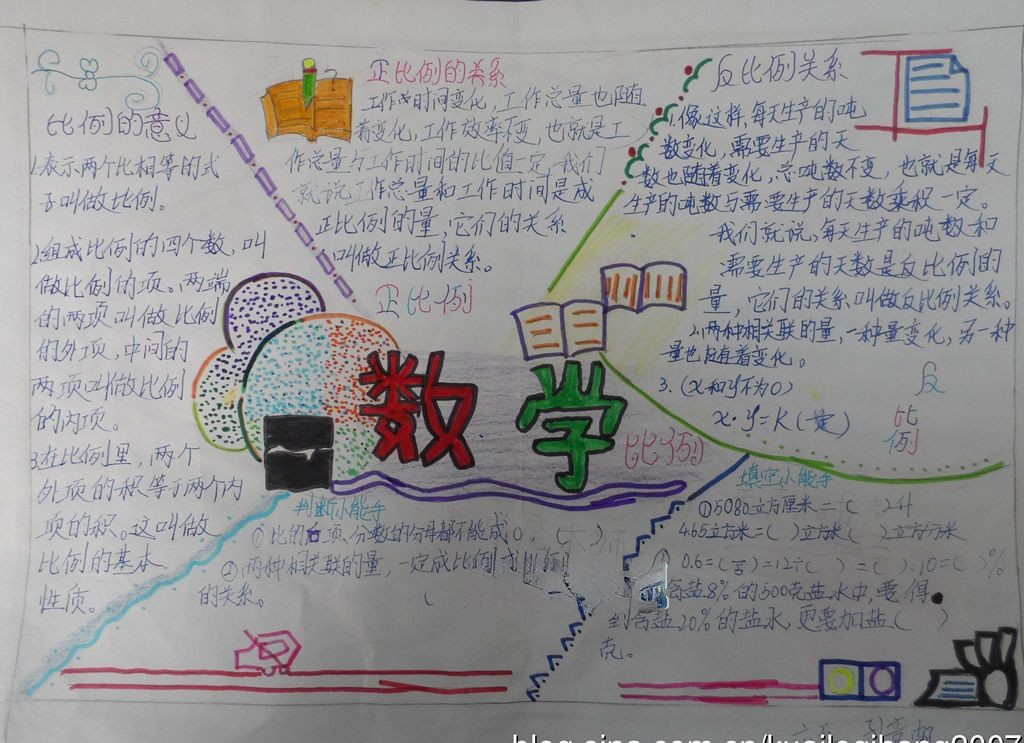 比例的意义
1.表示两个比相等的式
子叫做比例。
2.组成比例的四个数,叫
做比例的项。两端
的两项叫做比例
的外项,中间的
两项叫做比例
的内项。
3.在比例里,两个
外项的积等于两个内
项的积。这叫做
比例的基本
性质。
正比例的关系
工作时间变化,工作总量也随
着变化,工作效率不变,也就是工
作总量与工作时间的比值一定,我们
就说工作总量和工作时间是成
正比例的量,它们的关系
叫做正比例关系。
正比例
反比例关系
1.像这样,每天生产的吨
数变化,需要生产的天
数也随着变化,总吨数不变,也就是每天
生产的吨数与需要生产的天数乘积一定。
我们就说,每天生产的吨数和
需要生产的天数是反比例的
量,它们的关系叫做反比例关系。
2.两种相关联的量,一种量变化,另一种
量也随着变化。
3.(x和y不为0)
x·y=K(一定)
反
比
例
数学
比例
判断小能手
①比的后项,分数的分母都不能成0。( )
②两种相关联的量,一定成比例
的关系。 (
填空小能手
①5080立方厘米=( )升
4.65立方米=( )立方米( )立方分米
=12÷( )=( ):10=( )%
含盐8%的500克盐水中,要得
到含盐20%的盐水,要加盐( )
克。